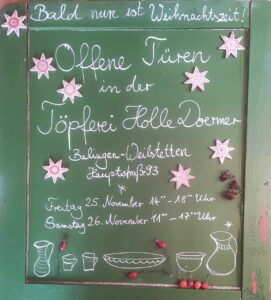 Bald nun ist Weihnachtszeit!
Offene Türen
in der
Töpferei Holle Doermer
Balingen-Weilstetten
Hauptstraße 93
Freitag 25. November 14°° - 18°° Uhr
Samstag 26. November 11°° - 17°° Uhr